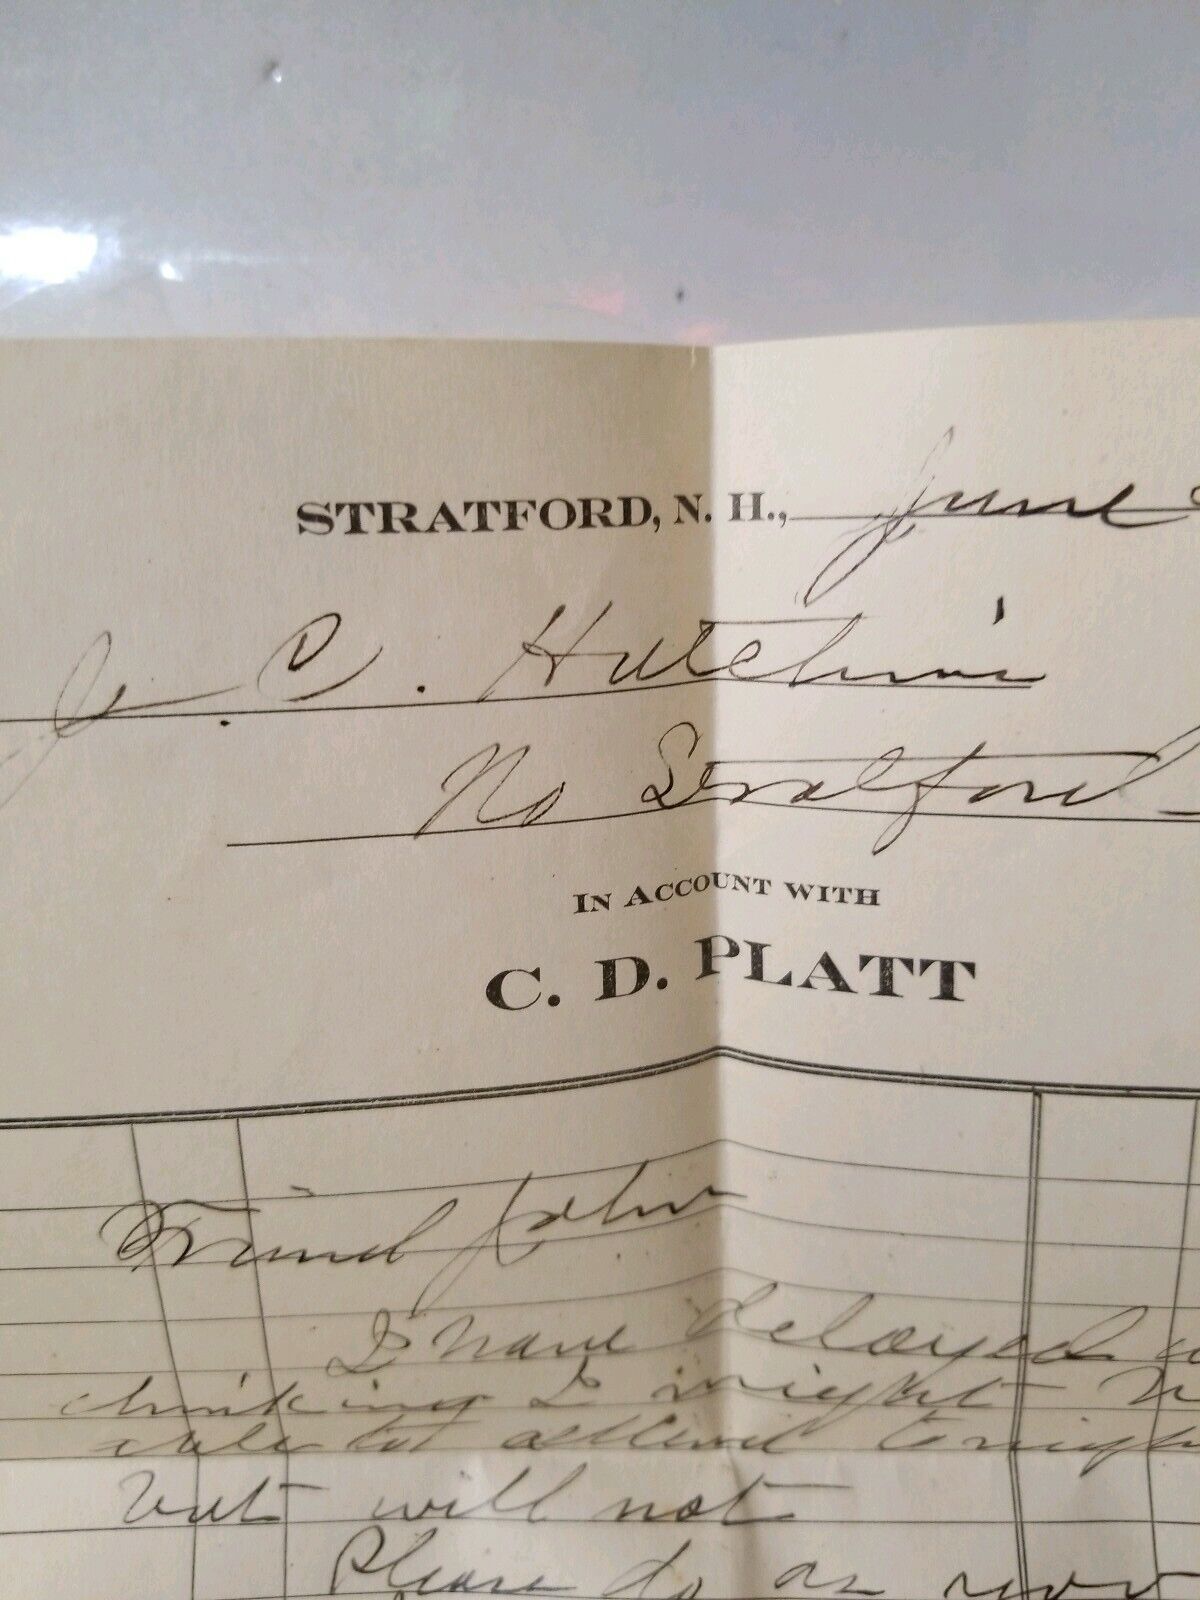 STRATFORD, N. H., June
J. C. Hutchins
No Stratford
IN ACCOUNT WITH
C. D. PLATT
Friend John
I have delayed
thinking I might
able to attend tonigh
but will not
Please do as you